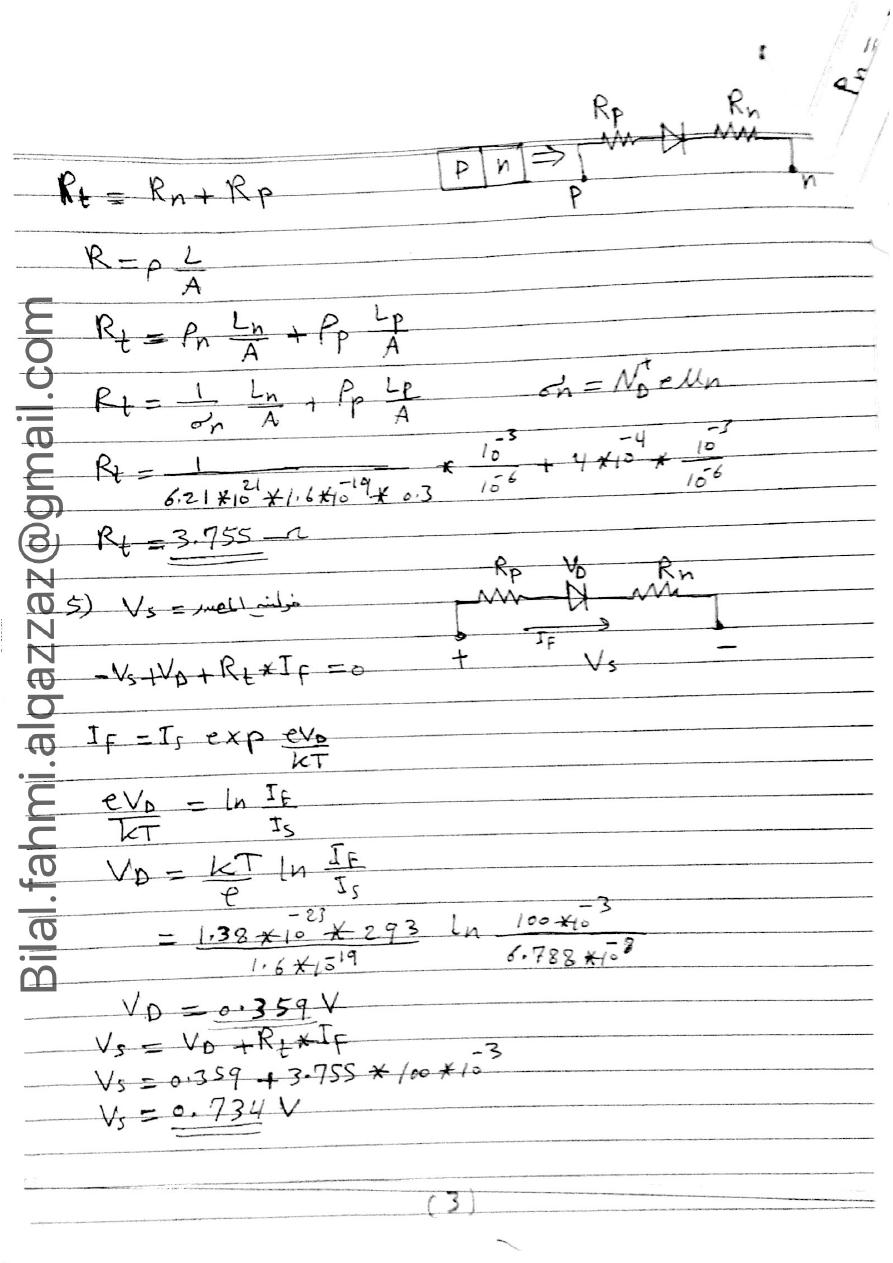 ρn =
Rp Rn
p n ⇒
p n
Rt = Rn + Rp
R = ρ L/A
Rt = ρn Ln/A + ρp Lp/A
Rt = 1/σn Ln/A + ρp Lp/A σn = N_D^+ e μn
Rt = 1/(6.21*10^21 * 1.6*10^-19 * 0.3) * 10^-3/10^-6 + 4*10^-4 * 10^-3/10^-6
Rt = 3.755 Ω
Rp VD Rn
5) Vs = فولتية المصدر
IF
+ Vs −
-Vs + VD + Rt * IF = 0
IF = Is exp eVD/kT
eVD/kT = ln IF/Is
VD = kT/e ln IF/Is
= 1.38*10^-23 * 293/1.6*10^-19 ln 100*10^-3/6.788*10^-8
VD = 0.359 V
Vs = VD + Rt * IF
Vs = 0.359 + 3.755 * 100 * 10^-3
Vs = 0.734 V
(3)
Bilal.fahmi.alqazzaz@gmail.com